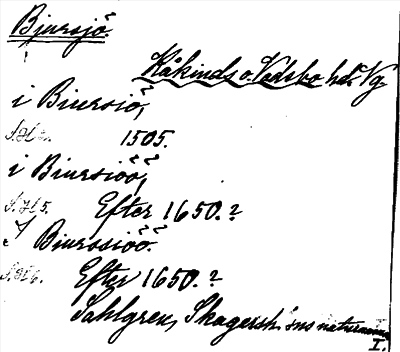 Bjursjö.
Kåkinds o. Vadsbo hdr Vg
i Biursiö,
1505.
i Biursiöö,
Efter 1650.?
J Biurssiöö.
Efter 1650.?
Sahlgren, Skagersh:sns naturnamn
I.